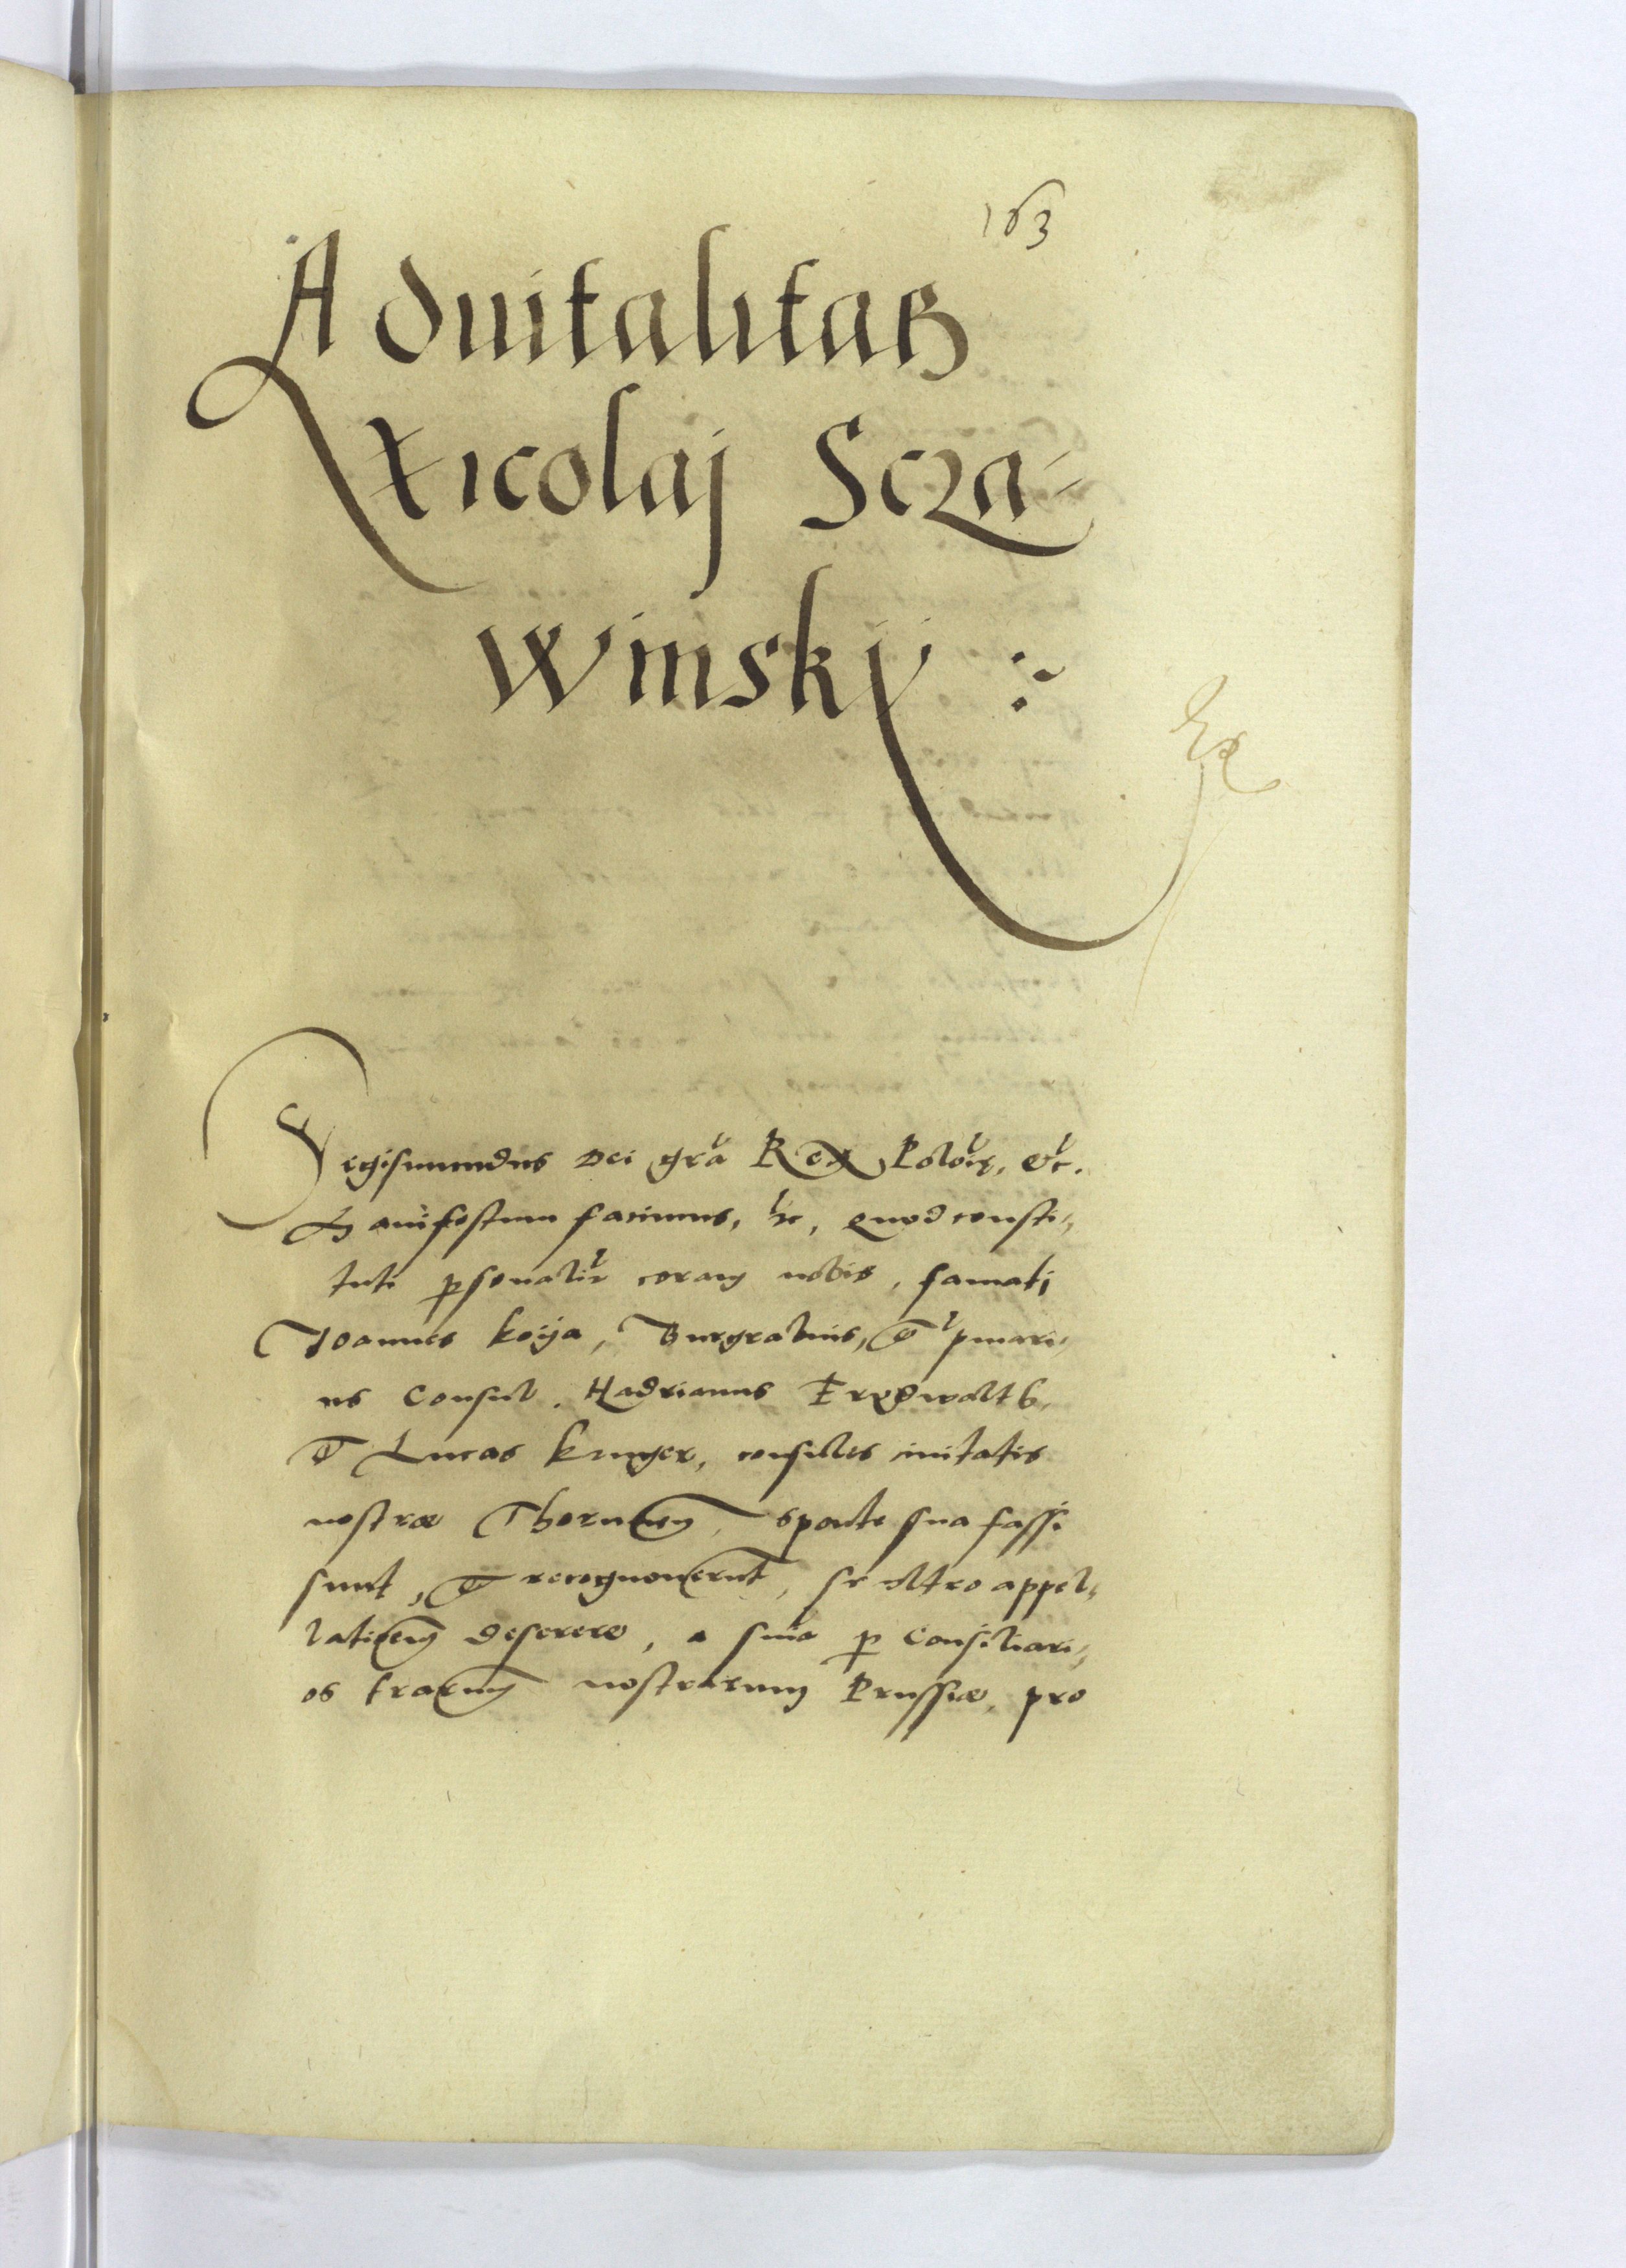 163
Aduitalitas
Nicolaj Scza-
winskij
Segismundus Dei gra Rex Polonie, etc.
Manifestum facimus, etc, quod consti-
tuti personaliter coram nobis, famati
Joannes Koÿa, Burgrabius, et primari-
us Consul, Hadrianus Fredwaltt
et Lucas Kruger, consules ciuitatis
nostræ Thorunen, sponte sua fassi
sunt, et recognouerunt, se ultro appel-
lationem deserere, a snia per Consiliari-
os terrarum nostrarum Prussiæ, pro